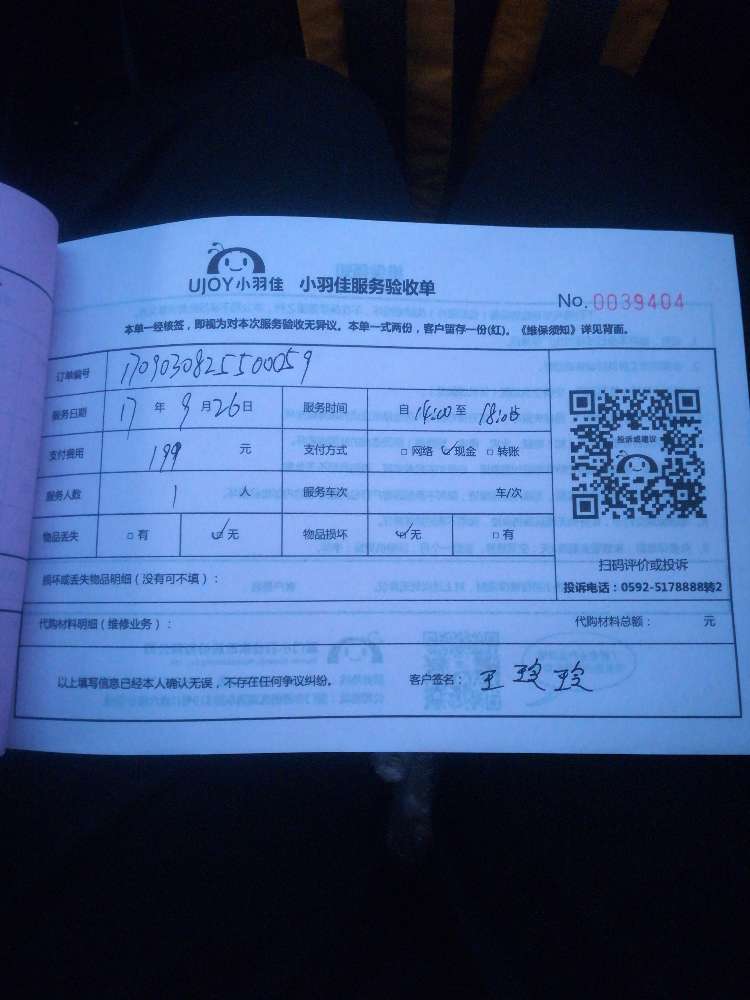 UJOY小羽佳 小羽佳服务验收单
No. 0039404
本单一经核签，即视为对本次服务验收无异议。本单一式两份，客户留存一份(红)。《维保须知》详见背面。
订单编号 1709030825500059
服务日期 17 年 9 月 26 日 服务时间 自 14:00 至 18:00
支付费用 199 元 支付方式 □ 网络 ☑ 现金 □ 转账
服务人数 1 人 服务车次 车/次
物品丢失 □ 有 ☑ 无 物品损坏 ☑ 无 □ 有
投诉或建议
扫码评价或投诉
投诉电话：0592-5178888转2
损坏或丢失物品明细（没有可不填）：
代购材料明细（维修业务）： 代购材料总额： 元
以上填写信息已经本人确认无误，不存在任何争议纠纷。 客户签名：王玫玫